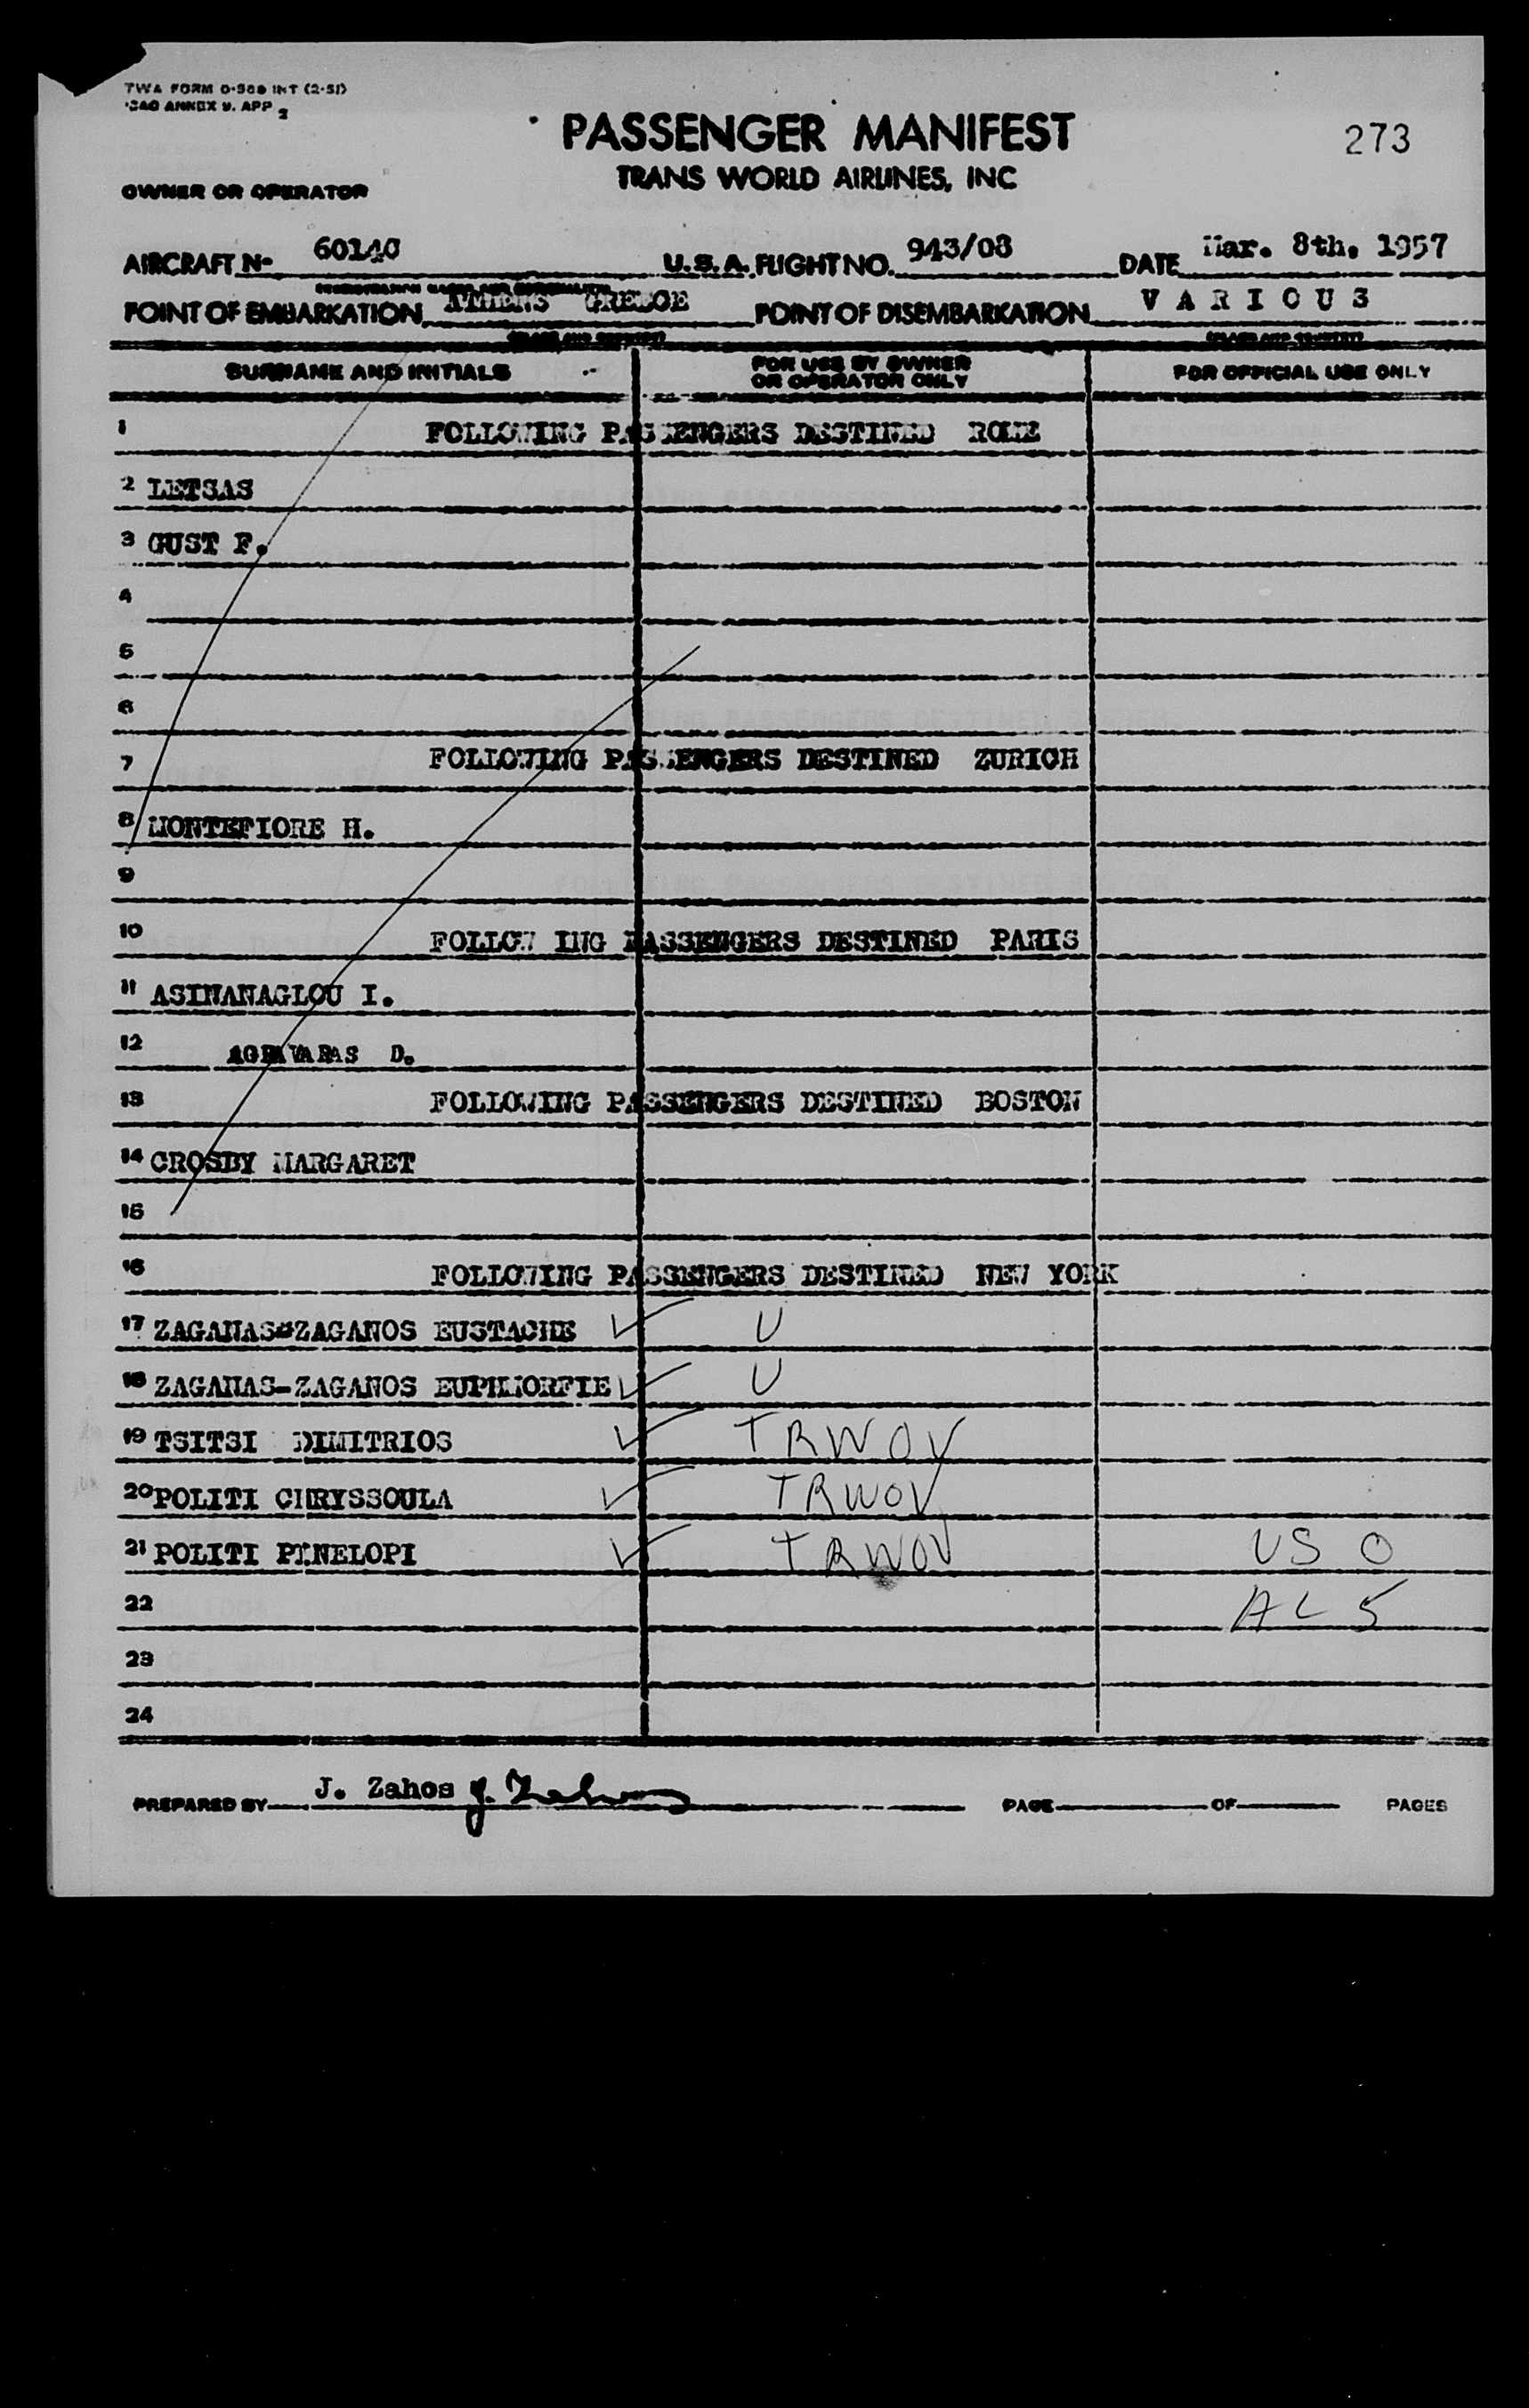 TWA FORM O-588 INT (2-51)
ICAO ANNEX 9. APP 2
PASSENGER MANIFEST
273
TRANS WORLD AIRLINES, INC
OWNER OR OPERATOR
AIRCRAFT No 60140 U.S.A. FLIGHT NO. 943/08 DATE Mar. 8th, 1957
POINT OF EMBARKATION ATHENS GREECE POINT OF DISEMBARKATION V A R I O U S
(PLACE AND COUNTRY) (PLACE AND COUNTRY)
SURNAME AND INITIALS FOR USE BY OWNER OR OPERATOR ONLY FOR OFFICIAL USE ONLY
1 FOLLOWING PASSENGERS DESTINED ROME
2 LETSAS
3 GUST F.
4
5
6
7 FOLLOWING PASSENGERS DESTINED ZURICH
8 MONTEFIORE H.
9
10 FOLLOW ING PASSENGERS DESTINED PARIS
11 ASINANAGLOU I.
12 AGRAVARAS D.
13 FOLLOWING PASSENGERS DESTINED BOSTON
14 CROSBY MARGARET
15
16 FOLLOWING PASSENGERS DESTINED NEW YORK
17 ZAGANAS-ZAGANOS EUSTACHE U
18 ZAGANAS-ZAGANOS EUPHMORFIE U
19 TSITSI DIMITRIOS TRWOV
20 POLITI CHRYSSOULA TRWOV
21 POLITI PENELOPI TRWOV US 0
22 AL 5
23
24
PREPARED BY J. Zahos J. Zahos PAGE OF PAGES